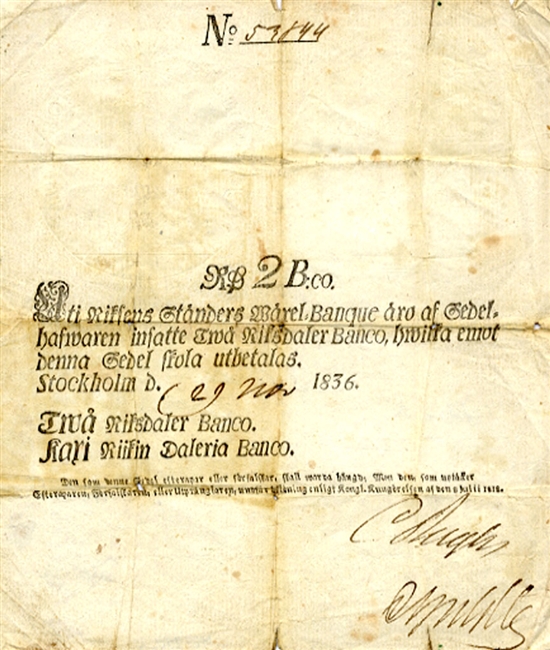 No 53844
RD 2 B:co.
Uti Riksens Ständers Wäxel-Banque äro af Sedel-
hafwaren insatte Twå Riksdaler Banco, hwilka emot
denna Sedel skola utbetalas.
Stockholm d. 29 Nov 1836.
Twå Riksdaler Banco.
Kaxi Riikin Daleria Banco.
Den som denne Sedel efterapar eller förfalskar, skall warda hängd; Men den, som uptäcker
Efteraparen, Förfalskaren, eller Utprånglaren, undfår belöning enligt Kongl. Kungörelsen af den